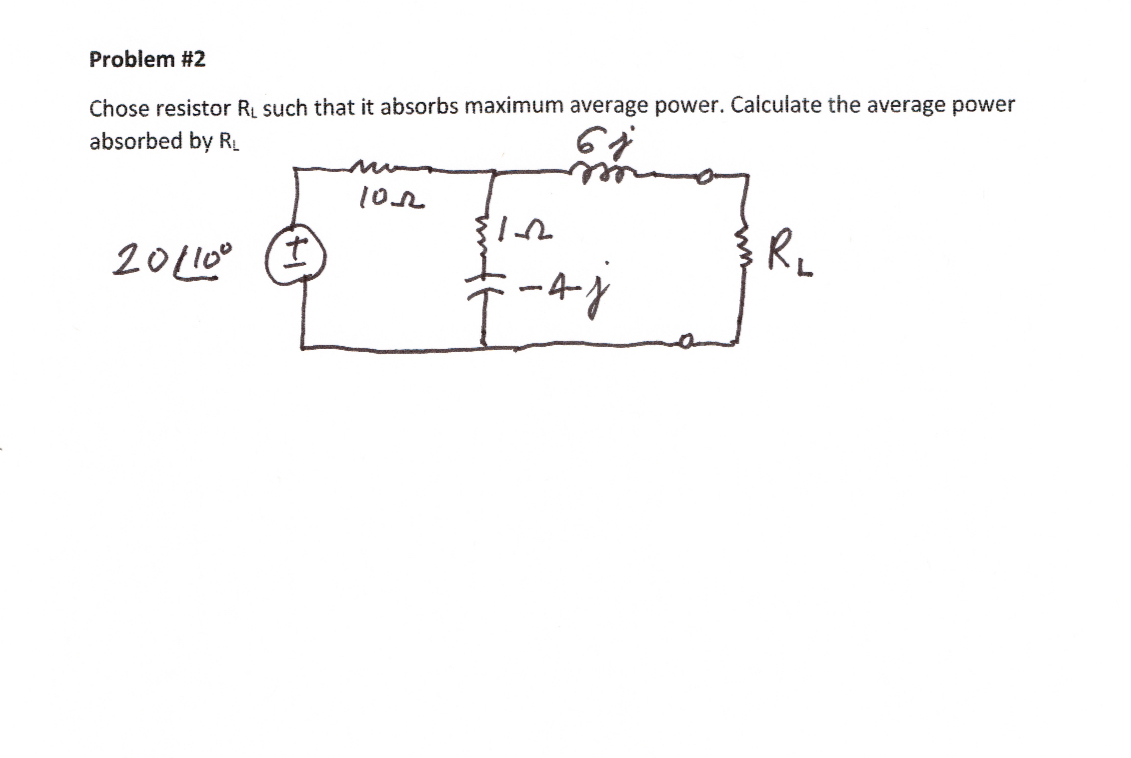 Problem #2
Chose resistor RL such that it absorbs maximum average power. Calculate the average power
absorbed by RL
6j
10Ω
1Ω
20∠10° ± RL
-4j